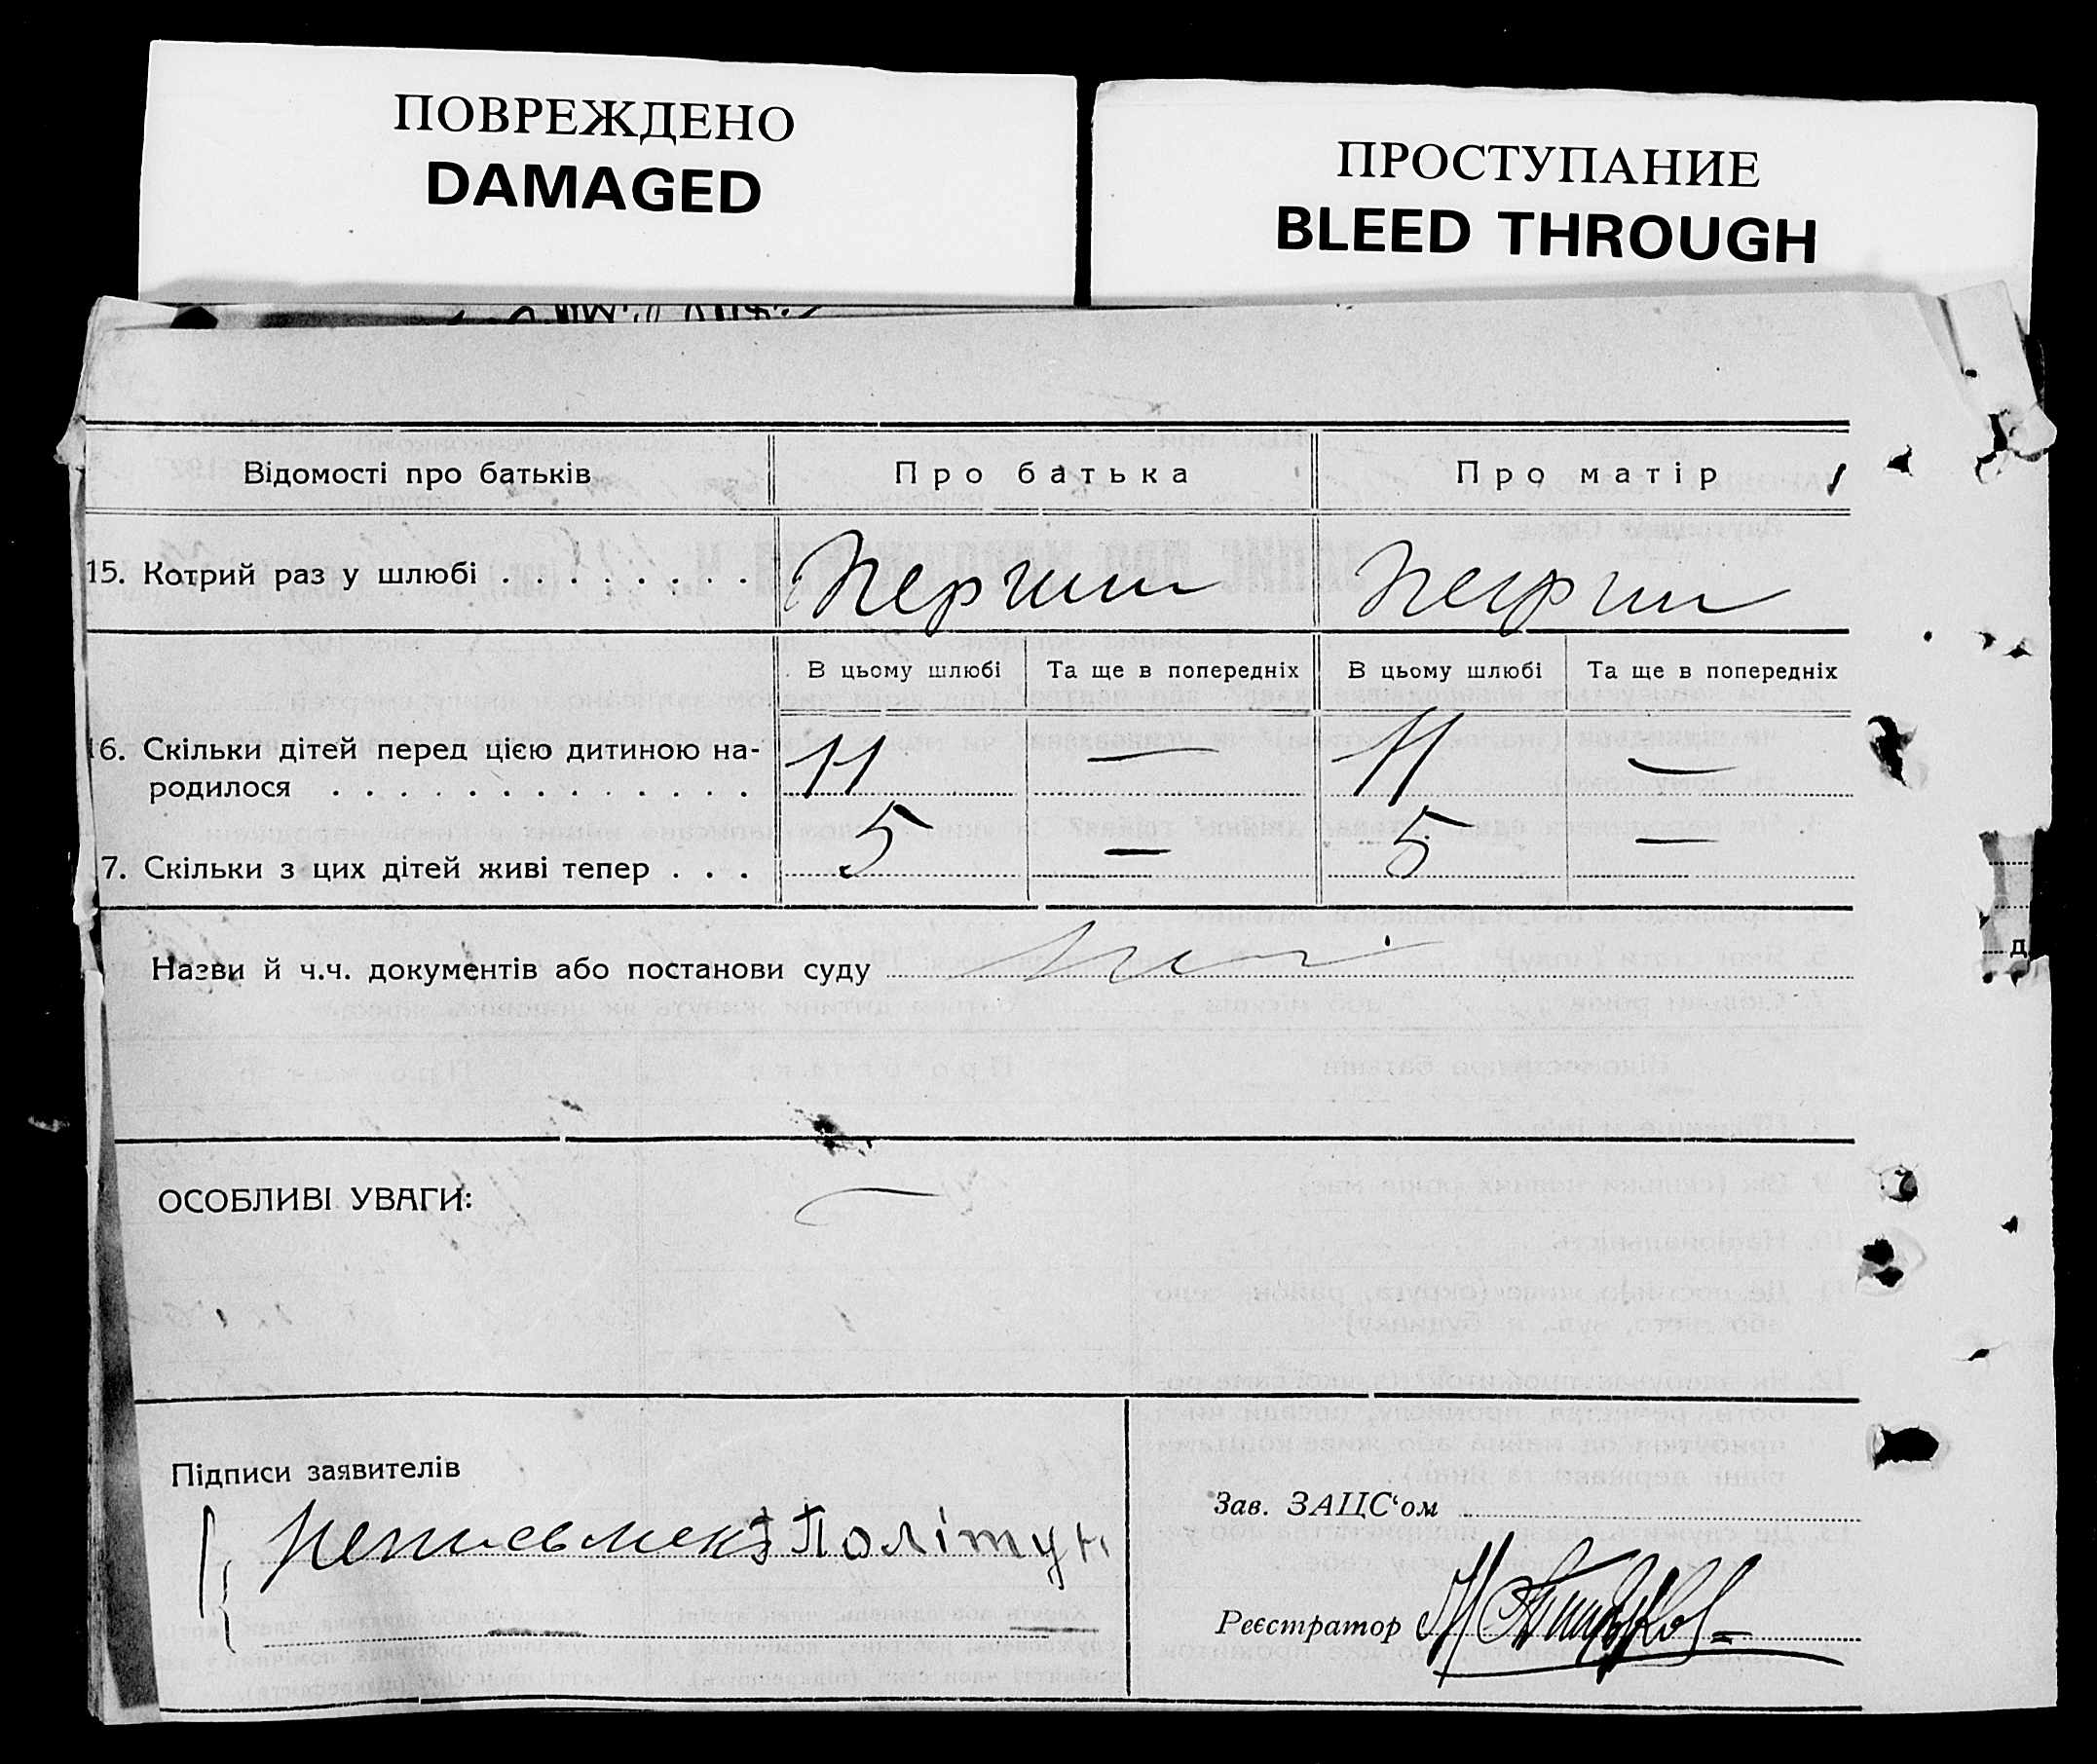 ПОВРЕЖДЕНО
DAMAGED
ПРОСТУПАНИЕ
BLEED THROUGH
Відомості про батьків Про батька Про матір
15. Котрий раз у шлюбі . . . . . . . . Перший Перший
В цьому шлюбі Та ще в попередніх В цьому шлюбі Та ще в попередніх
16. Скільки дітей перед цією дитиною на- 11 — 11 —
родилося . . . . . . . . . . . . . .
7. Скільки з цих дітей живі тепер . . . 5 — 5 —
Назви й ч.ч. документів або постанови суду
ОСОБЛИВІ УВАГИ: —
Підписи заявителів
Зав. ЗАЦС'ом
Реєстратор